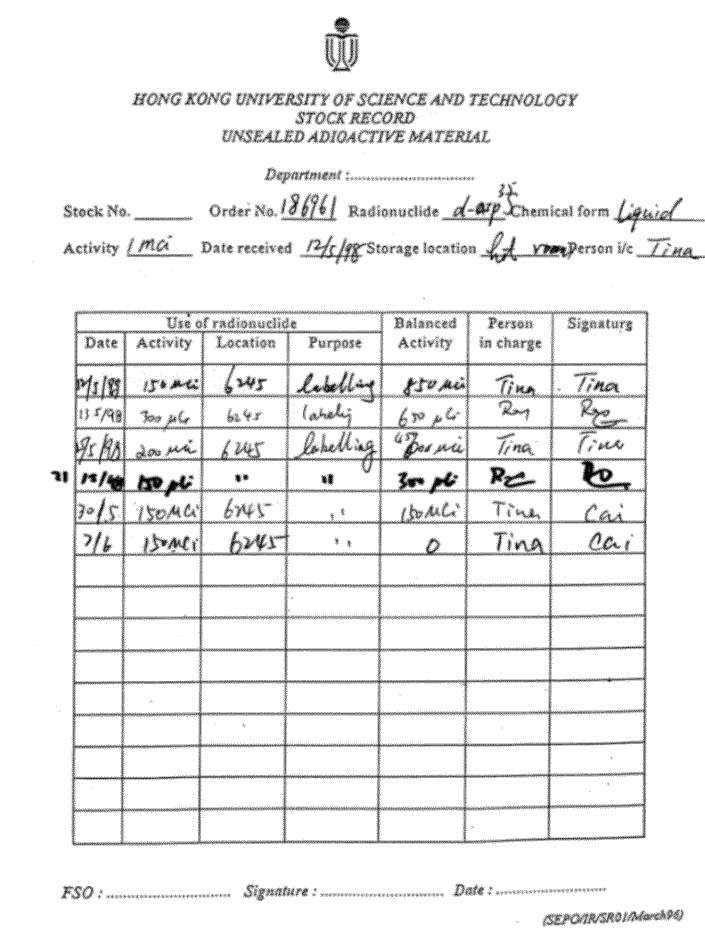 HONG KONG UNIVERSITY OF SCIENCE AND TECHNOLOGY
STOCK RECORD
UNSEALED ADIOACTIVE MATERIAL
Department :
Stock No. Order No. 186961 Radionuclide d-ATP 35S Chemical form Liquid
Activity 1 mci Date received 12/5/98 Storage location hot room Person i/c Tina
Use of radionuclide Balanced Activity Person in charge Signature
Date Activity Location Purpose
12/5/98 150 μci 6245 labelling 850 μci Tina Tina
13 5/98 300 μci 6245 650 μci
200 μci 6245 labelling Tina Tina
21 150 μci " " 300 μci
30/5 150 μCi 6245 " 150 μCi Tina Cai
2/6 150 μCi 6245 " 0 Tina Cai
FSO : Signature : Date :
(SEPO/IR/SR01/March96)